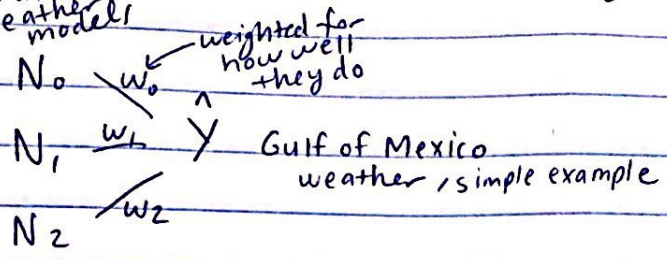 models
weighted for
how well
they do
N₀ w₀
N₁ w₁ ŷ Gulf of Mexico
weather, simple example
N₂ w₂